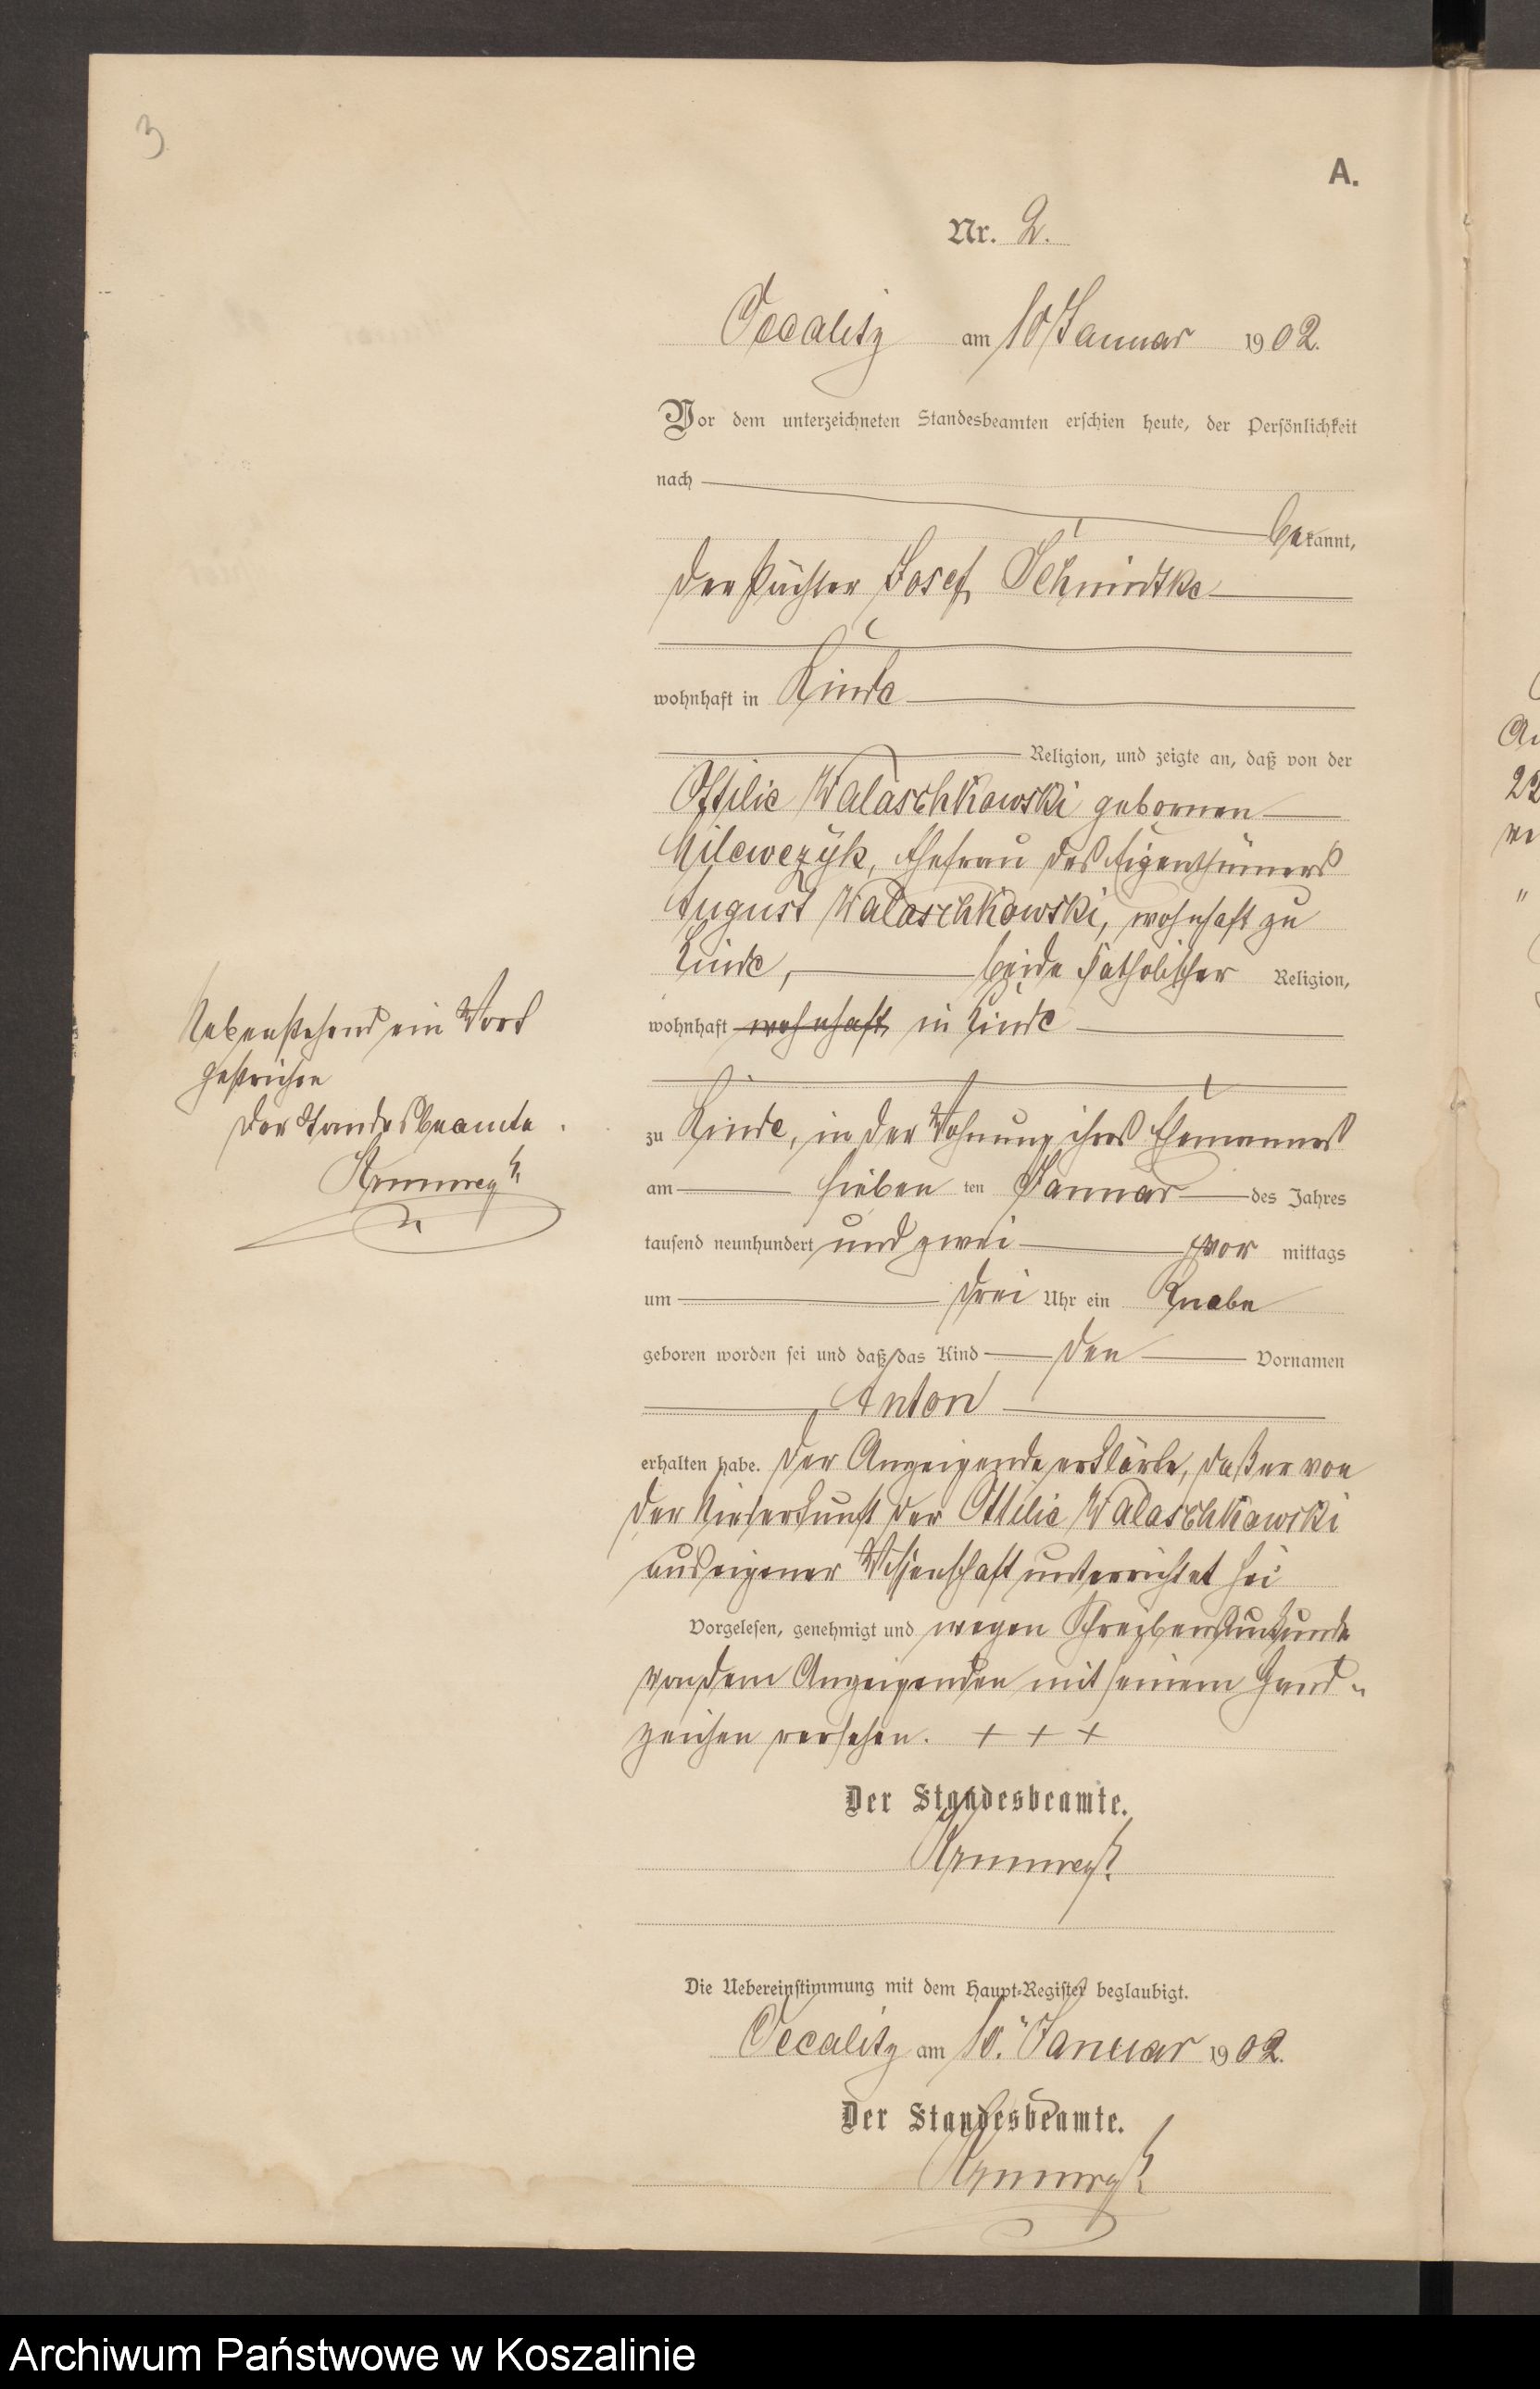 3
A.
Nr. 2.
Oecalitz am 10 Januar 1902.
Vor dem unterzeichneten Standesbeamten erschien heute, der Persönlichkeit
nach
bekannt,
der Pächter Josef Schmidtke
wohnhaft in Linde
Religion, und zeigte an, daß von der
Ottilie Walaschkowski geborenen
Milewczyk, Ehefrau des Eigenthümers
August Walaschkowski, wohnhaft zu
Linde, beide katholischer Religion,
wohnhaft wohnhaft in Linde
zu Linde, in der Wohnung ihres Ehemannes
am sieben ten Januar des Jahres
tausend neunhundert und zwei vor mittags
um drei Uhr ein Knabe
geboren worden sei und daß das Kind den Vornamen
Anton
erhalten habe. Der Anzeigende erklärte, daß er von
der Niederkunft der Ottilie Walaschkowski
aus eigener Wissenschaft unterrichtet sei
Vorgelesen, genehmigt und wegen Schreibensunkunde
von dem Anzeigenden mit seinem Hand-
zeichen versehen. + + +
Der Standesbeamte.
Die Uebereinstimmung mit dem Haupt-Register beglaubigt.
Oecalitz am 10. Januar 1902.
Der Standesbeamte.
Nebenstehend ein Wort
gestrichen
Der Standesbeamte
Archiwum Państwowe w Koszalinie